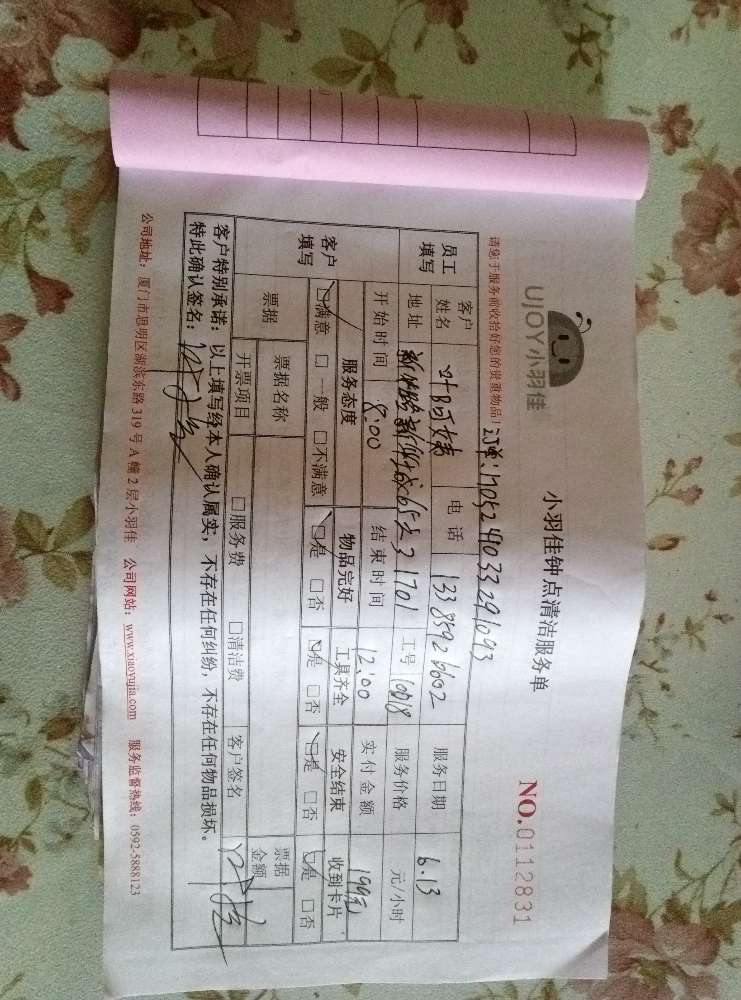 UJOY小羽佳
小羽佳钟点清洁服务单
NO.0112831
请您于服务前收拾好您的贵重物品!
员工填写
客户姓名 叶阿姨 电话 13385926602 服务日期 6.13
地址 1701 工号 服务价格 元/小时
开始时间 8:00 结束时间 12:00 实付金额
客户填写
服务态度 物品完好 工具齐全 安全结束 收到卡片
☑满意 □一般 □不满意 ☑是 □否 ☑是 □否 ☑是 □否 ☑是 □否
票据 票据名称 票据金额
开票项目 □服务费 □清洁费 客户签名
客户特别承诺:以上填写经本人确认属实,不存在任何纠纷,不存在任何物品损坏。
特此确认签名:
公司地址:厦门市思明区湖滨东路319号A幢2层小羽佳 公司网站:www.xiaoyujia.com 服务监督热线:0592-5888123